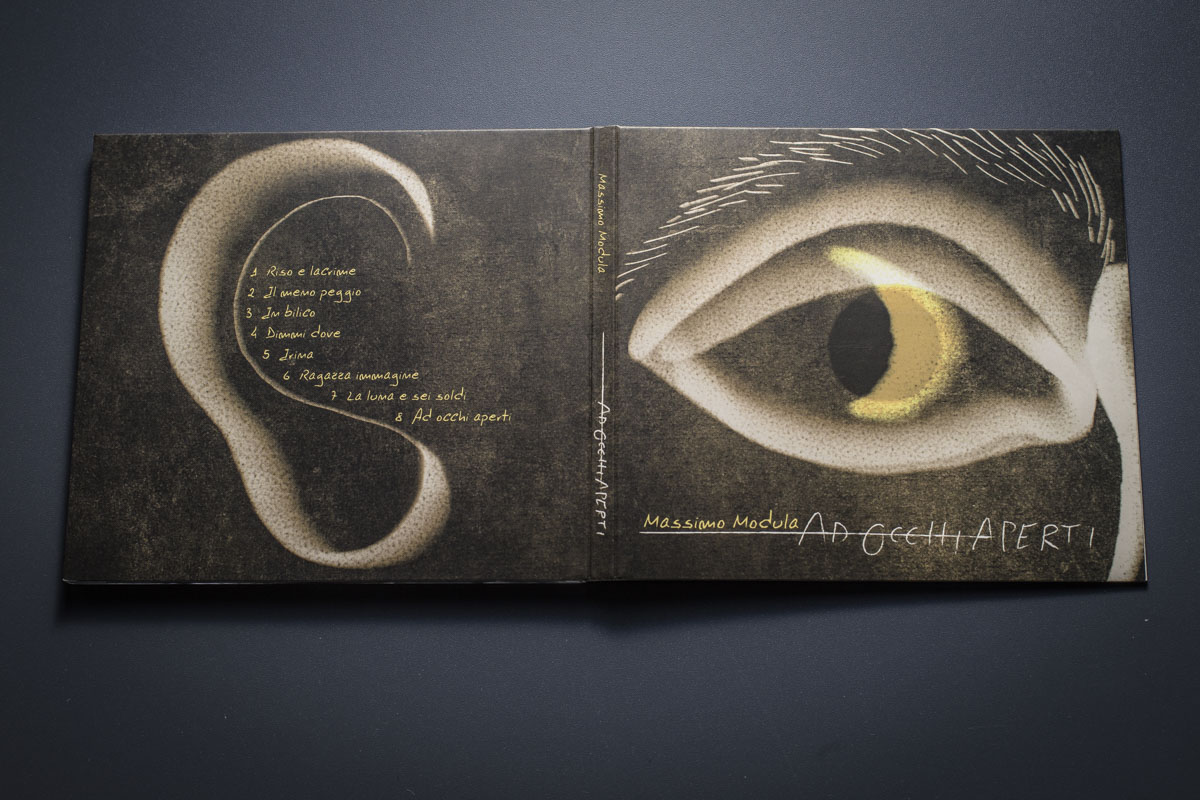 1 Riso e lacrime
2 Il meno peggio
3 In bilico
4 Dimmi dove
5 Irina
6 Ragazza immagine
7 La luna e sei soldi
8 Ad occhi aperti
Massimo Modula
AD OCCHI APERTI
Massimo Modula AD OCCHI APERTI